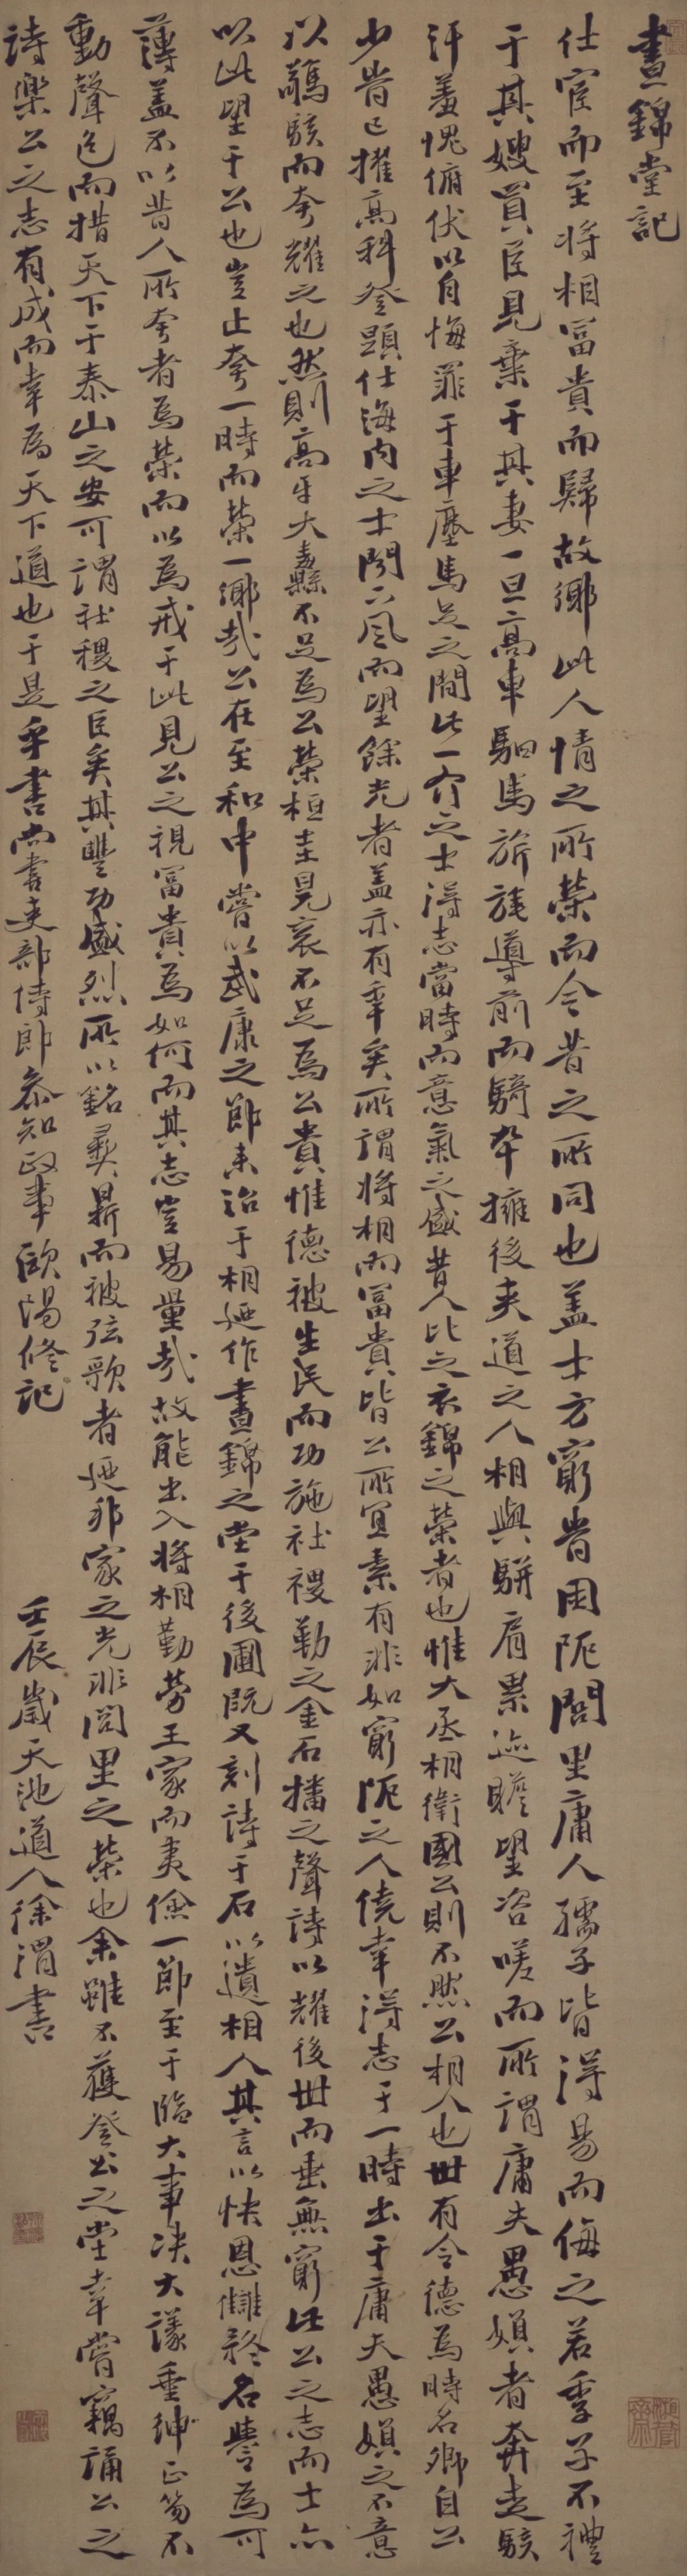 晝錦堂記
仕宦而至將相富貴而歸故鄉此人情之所榮而今昔之所同也蓋士方窮昔困阨閭里庸人孺子皆得易而侮之若季子不禮
于其嫂買臣見棄于其妻一旦高車駟馬旂旄導前而騎卒擁後夾道之人相與駢肩累迹瞻望咨嗟而所謂庸夫愚婦者奔走駭
汗羞愧俯伏以自悔罪于車塵馬足之間此一介之士得志當時而意氣之盛昔人比之衣錦之榮者也惟大丞相衛國公則不然公相人也世有令德為時名卿自公
少昔已擢高科登顯仕海內之士聞下風而望餘光者蓋亦有年矣所謂將相而富貴皆公所宜素有非如窮阨之人僥幸得志于一時出于庸夫愚婦之不意
以驚駭而夸耀之也然則高牙大纛不足為公榮桓圭冕袞不足為公貴惟德被生民而功施社稷勒之金石播之聲詩以耀後世而垂無窮此公之志而士亦
以此望于公也豈止夸一時而榮一鄉哉公在至和中嘗以武康之節來治于相迺作晝錦之堂于後圃既又刻詩于石以遺相人其言以快恩讎矜名譽為可
薄蓋不以昔人所夸者為榮而以為戒于此見公之視富貴為如何而其志豈易量哉故能出入將相勤勞王家而夷險一節至于臨大事決大議垂紳正笏不
動聲色而措天下于泰山之安可謂社稷之臣矣其豐功盛烈所以銘彝鼎而被弦歌者迺邦家之光非閭里之榮也余雖不獲登公之堂幸嘗竊誦公之
詩樂公之志有成而幸為天下道也于是乎書尚書吏部侍郎參知政事歐陽修記
壬辰歲天池道人徐渭書